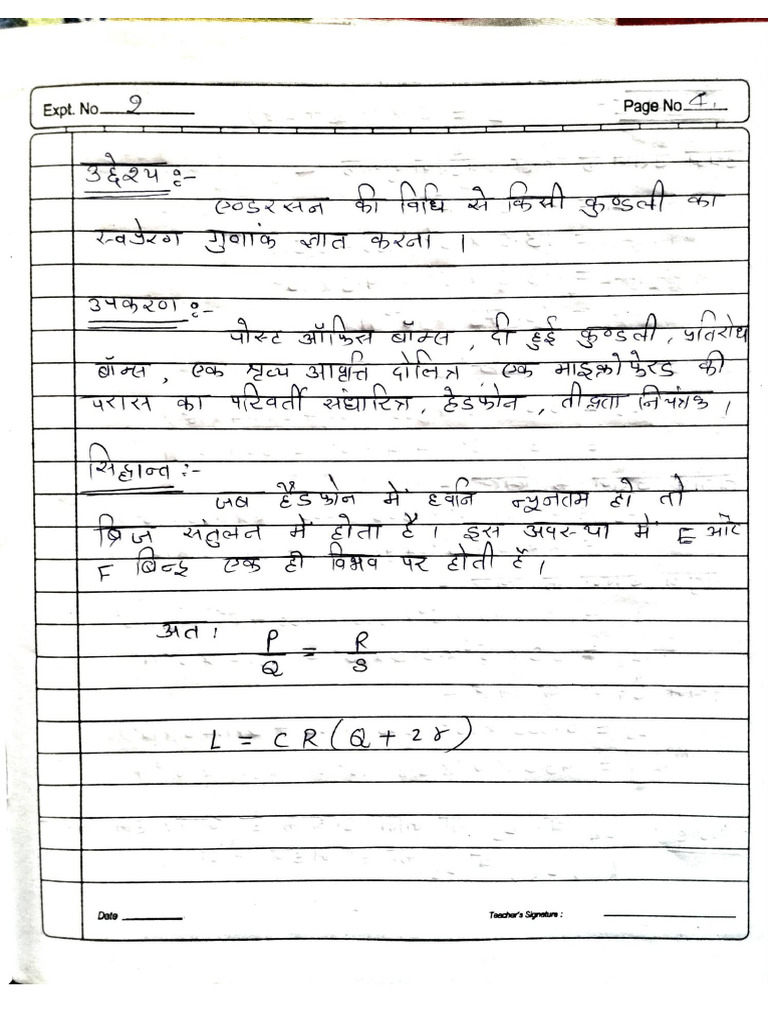 Expt. No 2 Page No 4.
उद्देश्य :-
एण्डरसन की विधि से किसी कुण्डली का
स्वप्रेरण गुणांक ज्ञात करना ।
उपकरण :-
पोस्ट ऑफिस बॉक्स , दी हुई कुण्डली , प्रतिरोध
बॉक्स , एक श्रव्य आवृत्ति दोलित्र , एक माइक्रोफेरड की
परास का परिवर्ती संधारित्र , हेडफोन , तीव्रता नियंत्रक ।
सिद्धान्त :-
जब हैडफोन में ध्वनि न्यूनतम हो तो
ब्रिज संतुलन में होता है । इस अवस्था में E और
F बिन्दु एक ही विभव पर होती है ।
अत ।
P/Q = R/S
L = CR(Q + 2r)
Date Teacher's Signature :